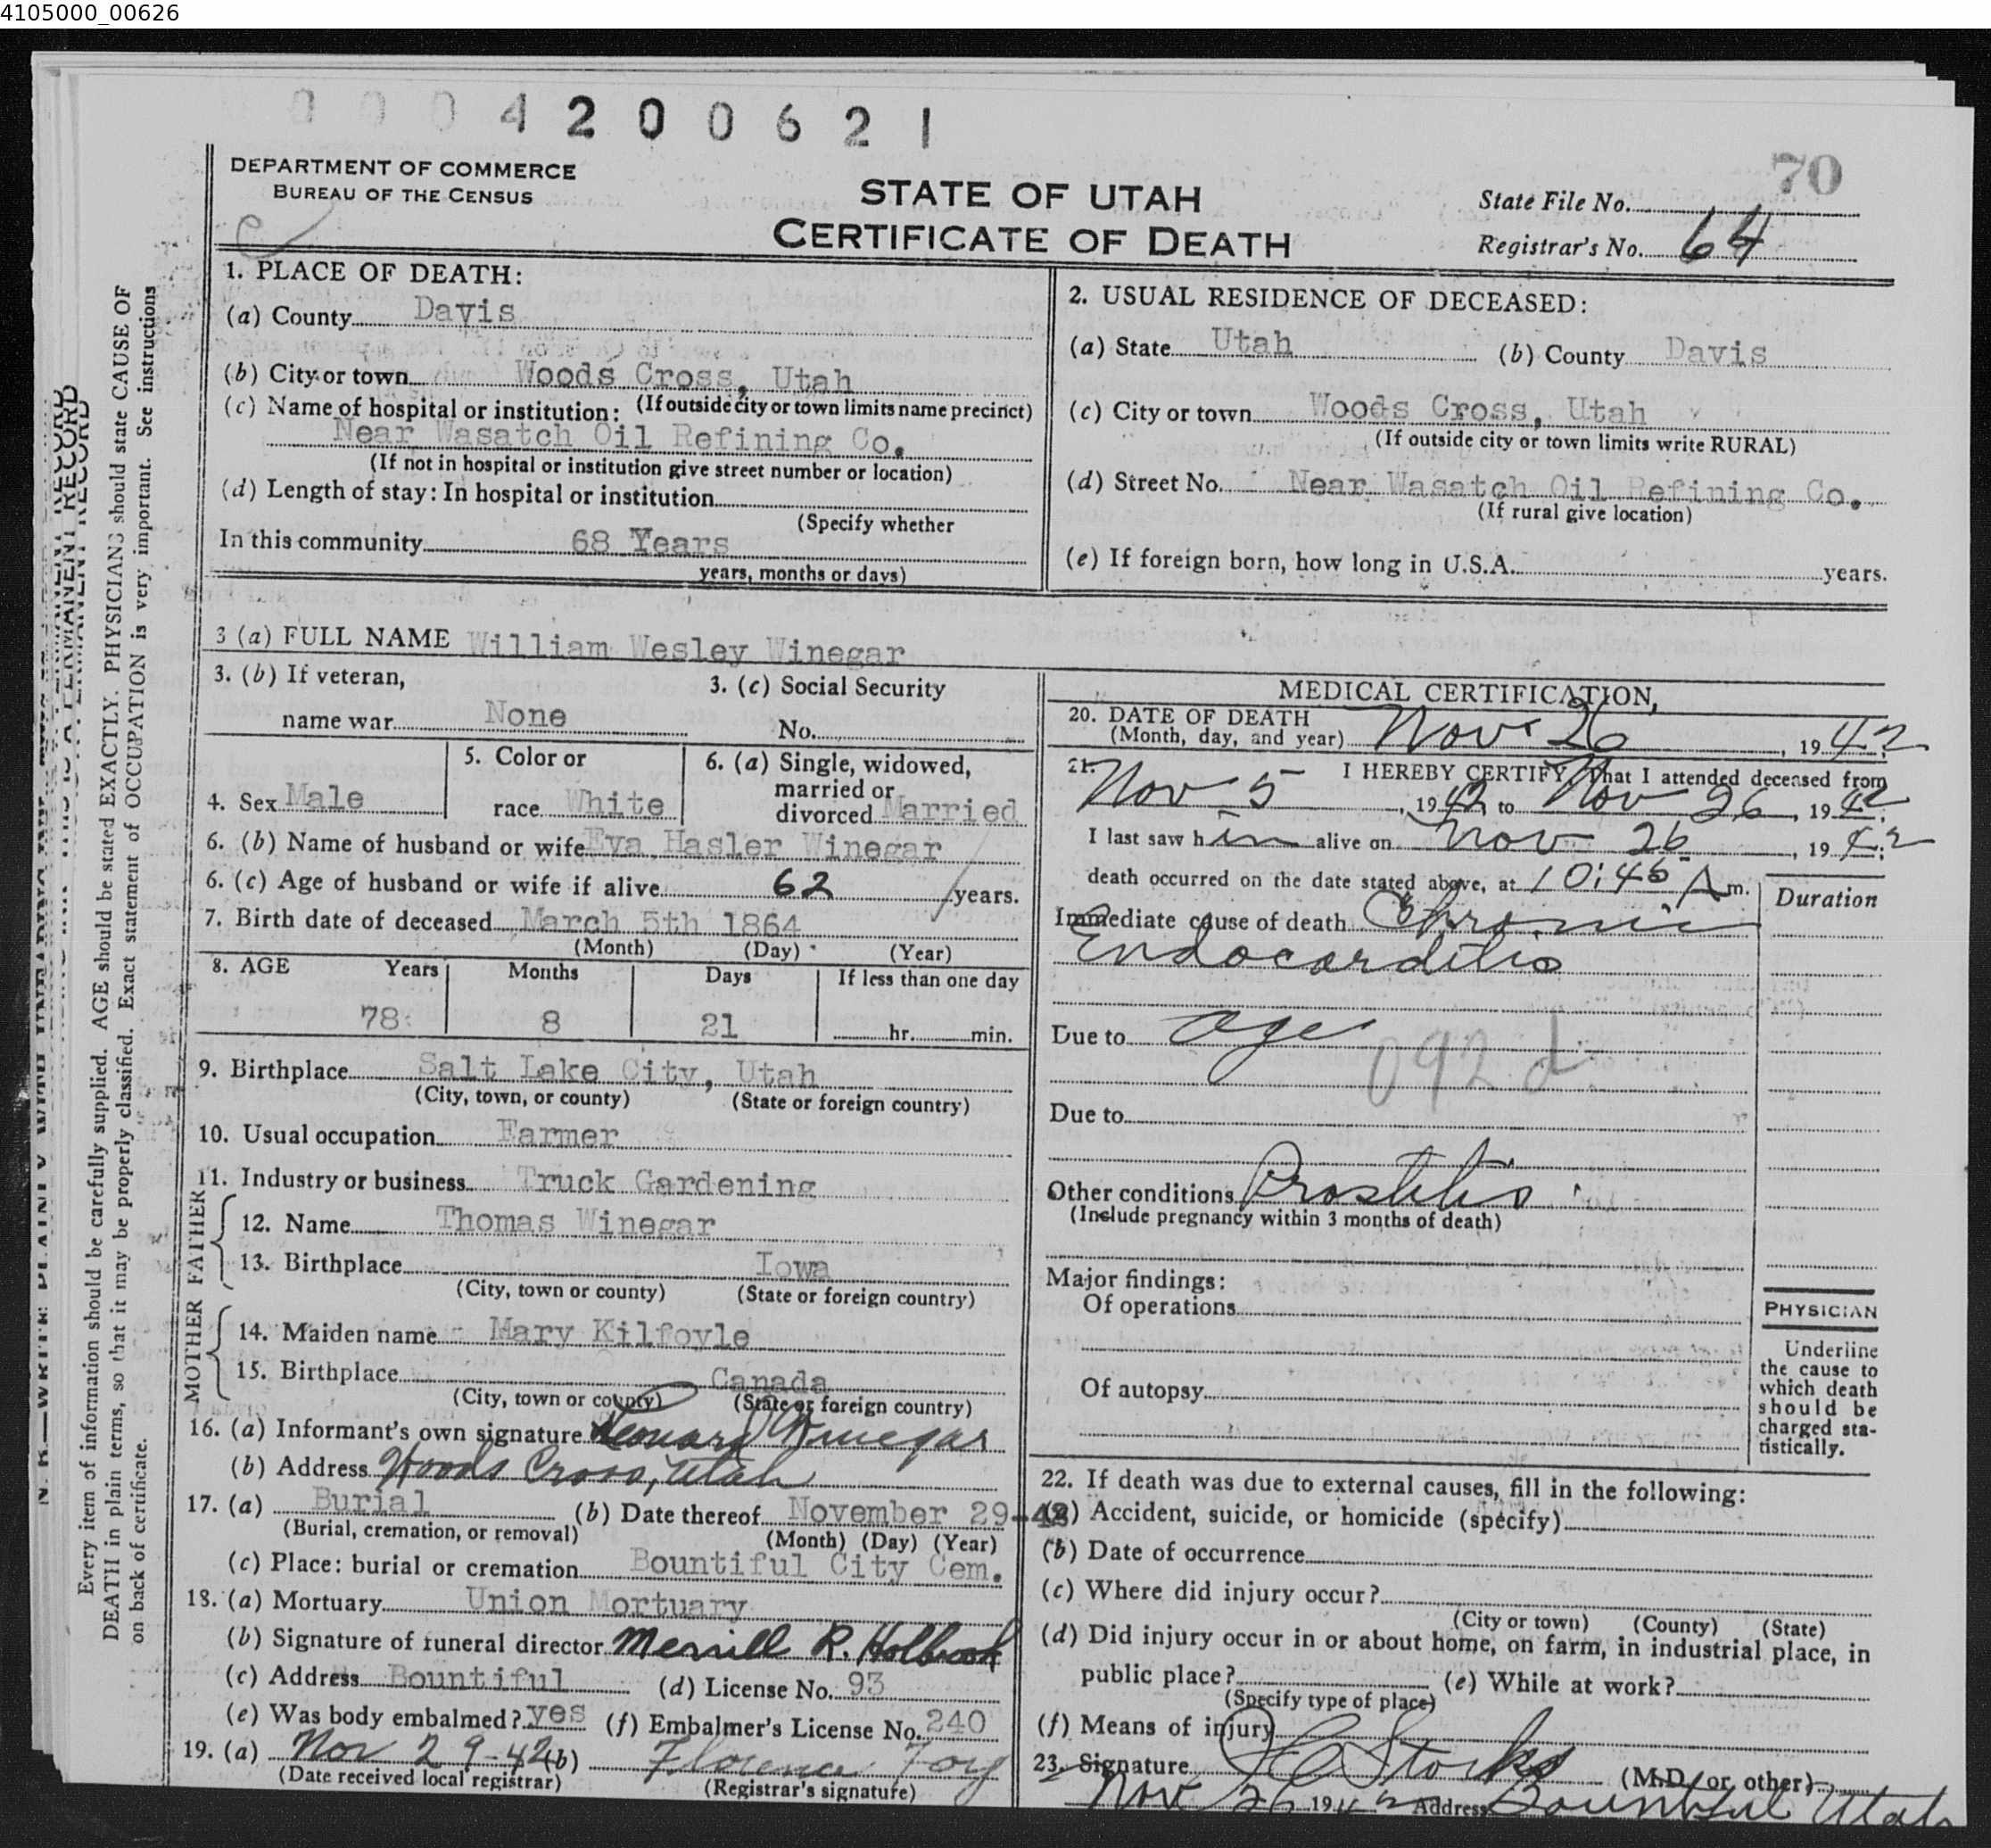 4105000_00626
0004200621
70
DEPARTMENT OF COMMERCE
BUREAU OF THE CENSUS
STATE OF UTAH
CERTIFICATE OF DEATH
State File No.
Registrar's No. 64
1. PLACE OF DEATH:
(a) County Davis
(b) City or town Woods Cross, Utah
(c) Name of hospital or institution: (If outside city or town limits name precinct)
Near Wasatch Oil Refining Co.
(If not in hospital or institution give street number or location)
(d) Length of stay: In hospital or institution
(Specify whether
In this community 68 Years
years, months or days)
2. USUAL RESIDENCE OF DECEASED:
(a) State Utah (b) County Davis
(c) City or town Woods Cross, Utah
(If outside city or town limits write RURAL)
(d) Street No. Near Wasatch Oil Refining Co.
(If rural give location)
(e) If foreign born, how long in U.S.A. years.
3 (a) FULL NAME William Wesley Winegar
3. (b) If veteran,
name war None
3. (c) Social Security
No.
4. Sex Male
5. Color or
race White
6. (a) Single, widowed,
married or
divorced Married
6. (b) Name of husband or wife Eva Hasler Winegar
6. (c) Age of husband or wife if alive 62 years.
7. Birth date of deceased March 5th 1864
(Month) (Day) (Year)
8. AGE Years Months Days If less than one day
78 8 21 hr. min.
9. Birthplace Salt Lake City, Utah
(City, town, or county) (State or foreign country)
10. Usual occupation Farmer
11. Industry or business Truck Gardening
FATHER
12. Name Thomas Winegar
13. Birthplace Iowa
(City, town or county) (State or foreign country)
MOTHER
14. Maiden name Mary Kilfoyle
15. Birthplace Canada
(City, town or county) (State or foreign country)
16. (a) Informant's own signature Leonard Winegar
(b) Address Woods Cross, Utah
17. (a) Burial (b) Date thereof November 29-42
(Burial, cremation, or removal) (Month) (Day) (Year)
(c) Place: burial or cremation Bountiful City Cem.
18. (a) Mortuary Union Mortuary
(b) Signature of funeral director Merrill R. Holbrook
(c) Address Bountiful (d) License No. 93
(e) Was body embalmed? yes (f) Embalmer's License No. 240
19. (a) Nov 29-42 (b) Florence Foy
(Date received local registrar) (Registrar's signature)
MEDICAL CERTIFICATION
20. DATE OF DEATH
(Month, day, and year) Nov 26, 1942
21. I HEREBY CERTIFY, That I attended deceased from
Nov 5, 1942 to Nov 26, 1942
I last saw him alive on Nov 26, 1942
death occurred on the date stated above, at 10:45 A m.
Duration
Immediate cause of death Chronic
Endocarditis
Due to age
092 d
Due to
Other conditions Prostitis
(Include pregnancy within 3 months of death)
Major findings:
Of operations
Of autopsy
PHYSICIAN
Underline
the cause to
which death
should be
charged sta-
tistically.
22. If death was due to external causes, fill in the following:
(a) Accident, suicide, or homicide (specify)
(b) Date of occurrence
(c) Where did injury occur?
(City or town) (County) (State)
(d) Did injury occur in or about home, on farm, in industrial place, in
public place? (e) While at work?
(Specify type of place)
(f) Means of injury
23. Signature Stocks (M.D. or other)
Nov 26 1942 Address Bountiful Utah
Every item of information should be carefully supplied. AGE should be stated EXACTLY. PHYSICIANS should state CAUSE OF
DEATH in plain terms, so that it may be properly classified. Exact statement of OCCUPATION is very important. See instructions
on back of certificate.